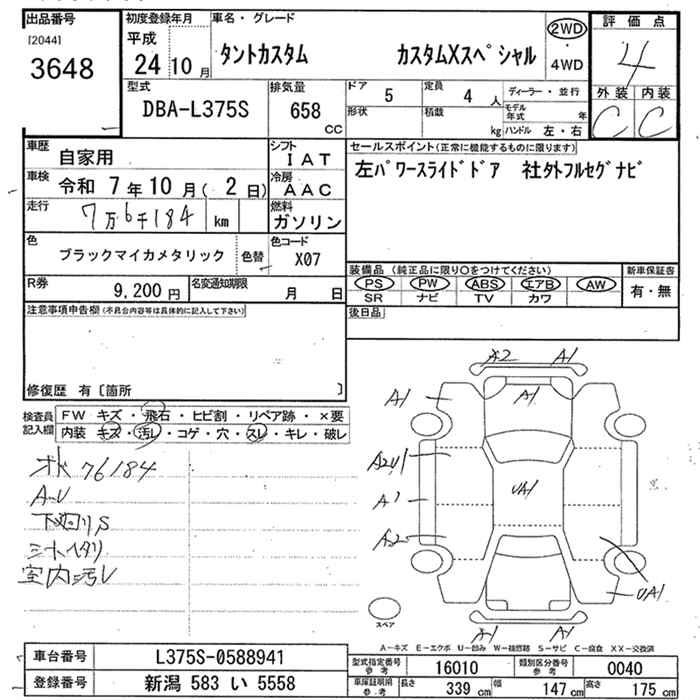 出品番号
[2044]
3648
初度登録年月
平成
24 10 月
車名・グレード
タントカスタム カスタムXスペシャル
2WD
・
4WD
評価点
4
外装 内装
C C
型式
DBA-L375S
排気量
658
CC
ドア
5
定員
4 人
形状
積載
kg
ディーラー・並行
モデル年式 年
ハンドル 左・右
車歴
自家用
シフト
IAT
車検
令和 7年10月(2日)
冷房
AAC
走行
7万6千184 km
燃料
ガソリン
色
ブラックマイカメタリック
色替
色コード
X07
R券
9,200 円
名変通知期限
月 日
セールスポイント(正常に機能するものに限ります)
左パワースライドドア 社外フルセグナビ
装備品 (純正品に限り○をつけてください)
PS PW ABS エアB AW
SR ナビ TV カワ
新車保証書
有・無
後日品
注意事項申告欄(不具合内容等は具体的に記入して下さい)
修復歴 有〔箇所 〕
検査員
記入欄
FW キズ・飛石・ヒビ割・リペア跡・×要
内装 キズ・汚レ・コゲ・穴・スレ・キレ・破レ
76184
A-U
下廻りS
シートヘタリ
室内汚レ
A2 A1
A1 A1
A2U1
A1
UA1
A2
UA1
A1 A1
スペア
A-キズ E-エクボ U-凹み W-補修跡 S-サビ C-腐食 XX-交換済
車台番号
L375S-0588941
登録番号
新潟 583 い 5558
型式指定番号
参考
16010
類別区分番号
参考
0040
車庫証明用
参考
長さ
339 cm
幅
147 cm
高さ
175 cm